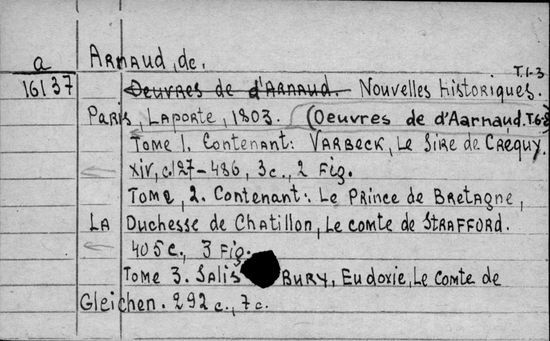 a Arnaud, de.
T.1-3
16137 Oeuvres de d'Arnaud. Nouvelles Historiques.
Paris, Laporte, 1803. (Oeuvres de d'Aarnaud. T.6-8)
Tome 1. Contenant: Varbeck, Le Sire de Créquy.
XIV, c. 127-486, 3 c., 2 Fig.
Tome, 2. Contenant: Le Prince de Bretagne,
La Duchesse de Chatillon, Le comte de Strafford.
405 c., 3 Fig.
Tome 3. Salis Bury, Eudoxie, Le Comte de
Gleichen. 292 c., 7 c.